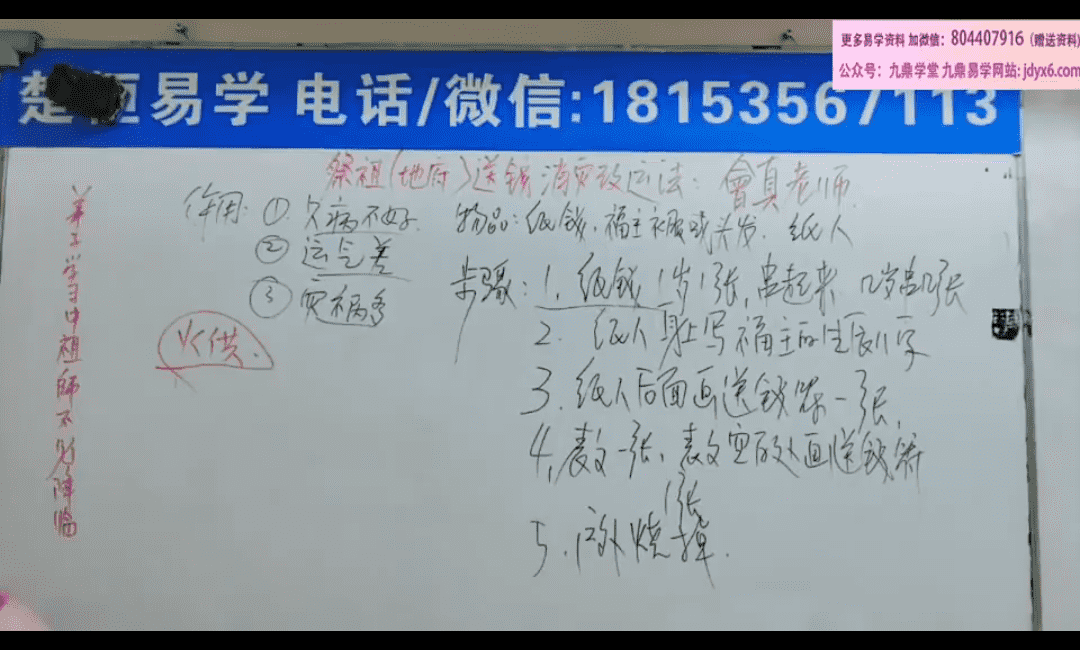 更多易学资料 加微信：804407916（赠送资料）
公众号：九鼎学堂 九鼎易学网站：jdyx6.com
楚恒易学 电话/微信：18153567113
祭祖（地府）送钱消灾改运法：會真老师
弟子学习中祖师不必降临
作用：① 久病不好
② 运气差
③ 灾祸多
火供.
物品：纸钱、福主衣服或头发、纸人
步骤：1、纸钱1岁1张，串起来 几岁串几张
2. 纸人身上写福主的生辰八字
3. 纸人后面画送钱符一张，
4、表文一张、表文空的处画送钱符
1张
5. 门外烧掉.